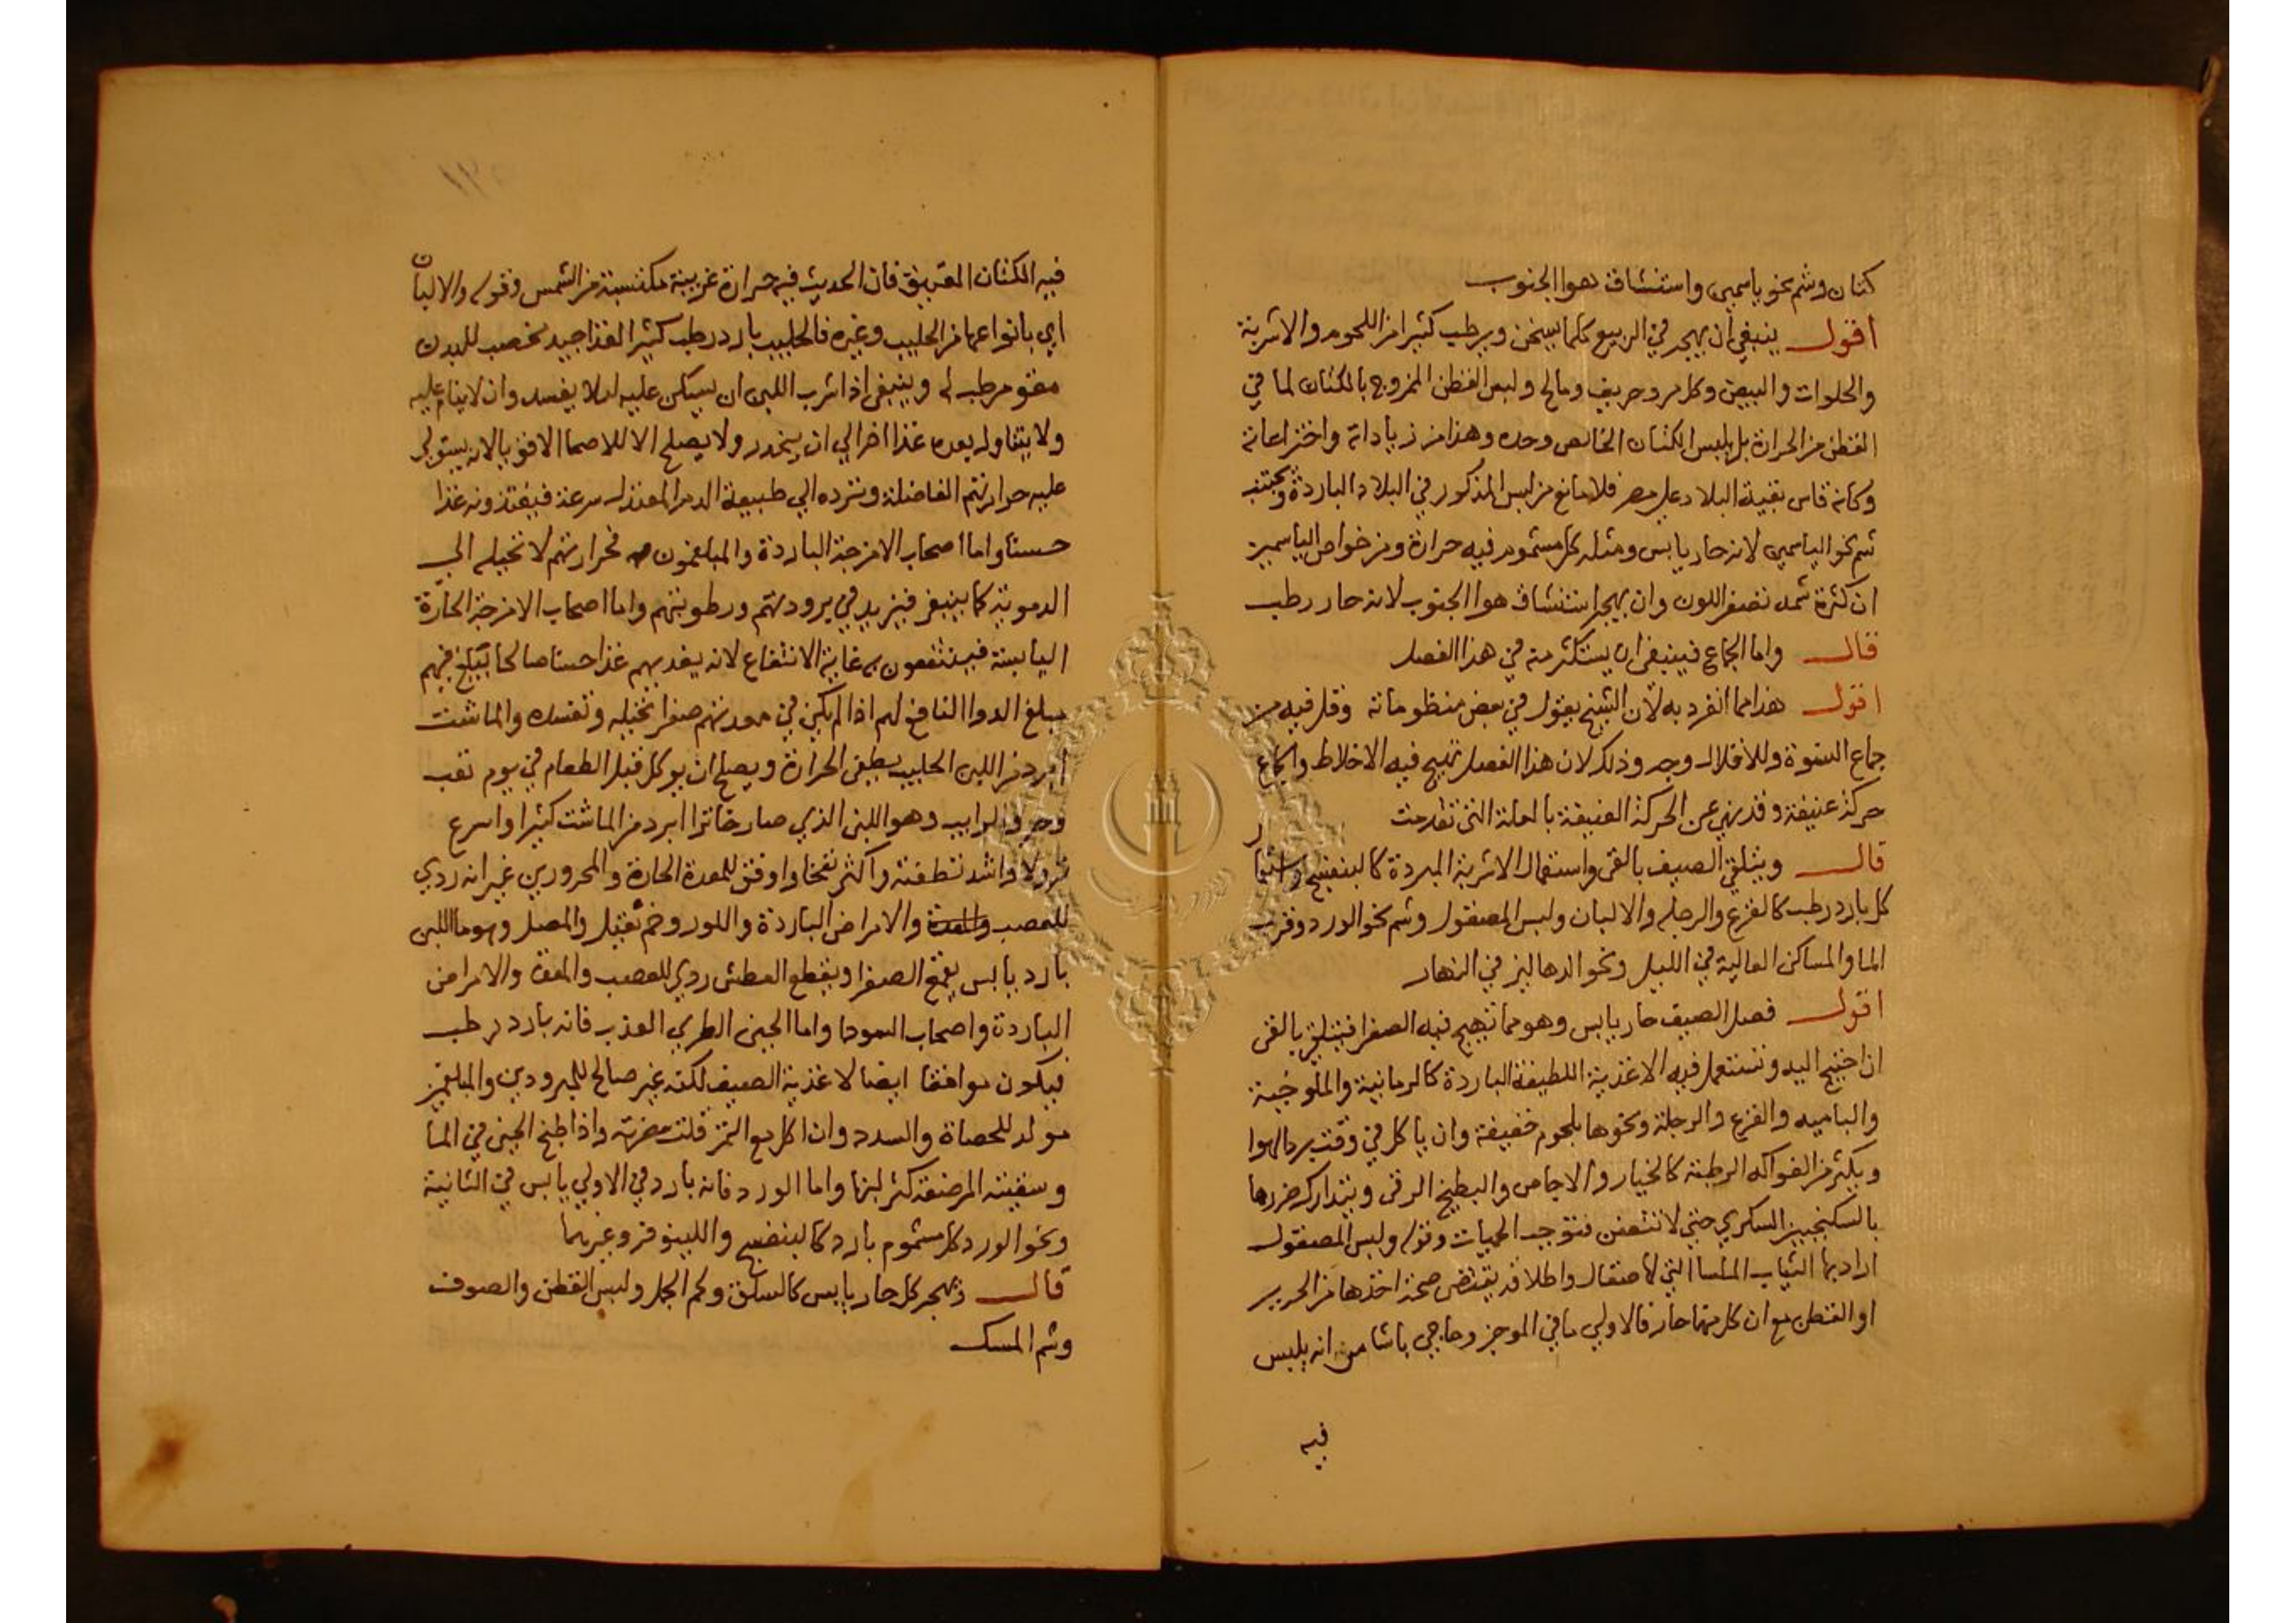 كتان وشم نحو ياسمين واستنشاق هوا الجنوب
اقول ينبغي ان يهجر في الربيع كلما يسخن ويرطب كثيرا من اللحوم والاشربة
والحلوات والبيض وكل مر وحريف ومالح ولبس القطن الممزوج بالكتان لما في
القطن من الحرارة بل يلبس الكتان الخالص وحده وهذا من زياداته واختراعاته
وكانه قاس بقية البلاد على مصر فلا مانع من لبس المذكور في البلاد الباردة ويجتنب
شم نحو الياسمين لانه حار يابس ومثله كل مشموم فيه حرارة ومن خواص الياسمين
ان كثرة شمه تصفر اللون وان يهجر استنشاق هوا الجنوب لانه حار رطب
قال واما الجماع فينبغي ان يستكثر منه في هذا الفصل
اقول هذا مما انفرد به لان الشيخ يقول في بعض منظوماته وقلل فيه من
جماع النسوة وللاقلال وجه وذلك لان هذا الفصل تهيج فيه الاخلاط والجماع
حركة عنيفة وقد نهي عن الحركة العنيفة بالعلة التي تقدمت
قال ويتلقي الصيف بالقي واستعمال الاشربة المبردة كالبنفسج واستعمال
كل بارد رطب كالقرع والرجله والالبان ولبس المصقول وشم نحو الورد وقرب
الما والمساكن العالية في الليل ونحو الدهاليز في النهار
اقول فصل الصيف حار يابس وهو مما تهيج فيه الصفرا فيتلقي بالقي
ان احتيج اليه وتستعمل فيه الاغذية اللطيفة الباردة كالرمانية والملوخية
والباميه والقرع والرجلة ونحوها بلحوم خفيفة وان ياكل في وقت برد الهوا
ويكثر من الفواكه الرطبة كالخيار والاجاص والبطيخ الرقي ويتدارك ضررها
بالسكنجبين السكري حتي لا تتعفن فتوجب الحميات وقوله ولبس المصقول
اراد بها الثياب الملسا التي لا صقال واطلاقه يقتضي صحة اخذها من الحرير
او القطن مع ان كل منهما حار فالاولي ما في الموجز وحاجي باشا من انه يلبس
فيه
فيه الكتان العتيق فان الحديث فيه حرارة غريبة مكتسبة من الشمس وقوله والالبان
اي بانواعها من الحليب وغيره فالحليب بارد رطب كثير الغذا جيد مخصب للبدن
مقو مرطب له وينبغي اذا شرب اللبن ان يسكن عليه لىلا يفسد وان لا ينام عليه
ولا يتناول بعده غذا اخر الي ان ينحدر ولا يصلح الا للاصحا الاقويا لانه يستولي
عليه حرارتهم الفاضلة وترده الي طبيعة الدم المعتدل سرعة فيغتذونه غذا
حسنا واما اصحاب الامزجة الباردة والمبلغمون فحرارتهم لا تحيله الي
الدموية كما ينبغي فيزيد في برودتهم ورطوبتهم واما اصحاب الامزجة الحارة
اليابسة فينتفعون به غاية الانتفاع لانه يغديهم غذا حسنا صالحا يبلغ فيهم
مبلغ الدوا النافع لهم اذا لم يكن في معدتهم صفرا تحيله وتفسده والماشت
ابرد من اللبن الحليب يطفي الحرارة ويصلح ان يوكل قبل الطعام في يوم تعب
وحر والرايب وهو اللبن الذي صار خاثرا ابرد من الماشت كثيرا واسرع
نزولا واشد تطفئة واكثر نفخا واوفق للمعدة الحارة والمحرورين غير انه ردي
للعصب والمعدة والامراض الباردة واللور وخم ثقيل والمصل وهو ما اللبن
بارد يابس يقمع الصفرا ويقطع العطش ردي للعصب والمعدة والامراض
الباردة واصحاب السودا واما الجبن الطري العذب فانه بارد رطب
فيكون موافقا ايضا لاغذية الصيف لكنه غير صالح للمبرودين والمبلغمين
مولد للحصاة والسدد وان اكل مع التمر قلت مضرته واذا طبخ الجبن في الما
وسقيته المرضعة كثر لبنها واما الورد فانه بارد في الاولي يابس في الثانية
ونحو الورد كل مشموم بارد كالبنفسج واللينوفر وغيرهما
قال ويهجر كل حار يابس كالسلق ولحم الجمل ولبس القطن والصوف
وشم المسك